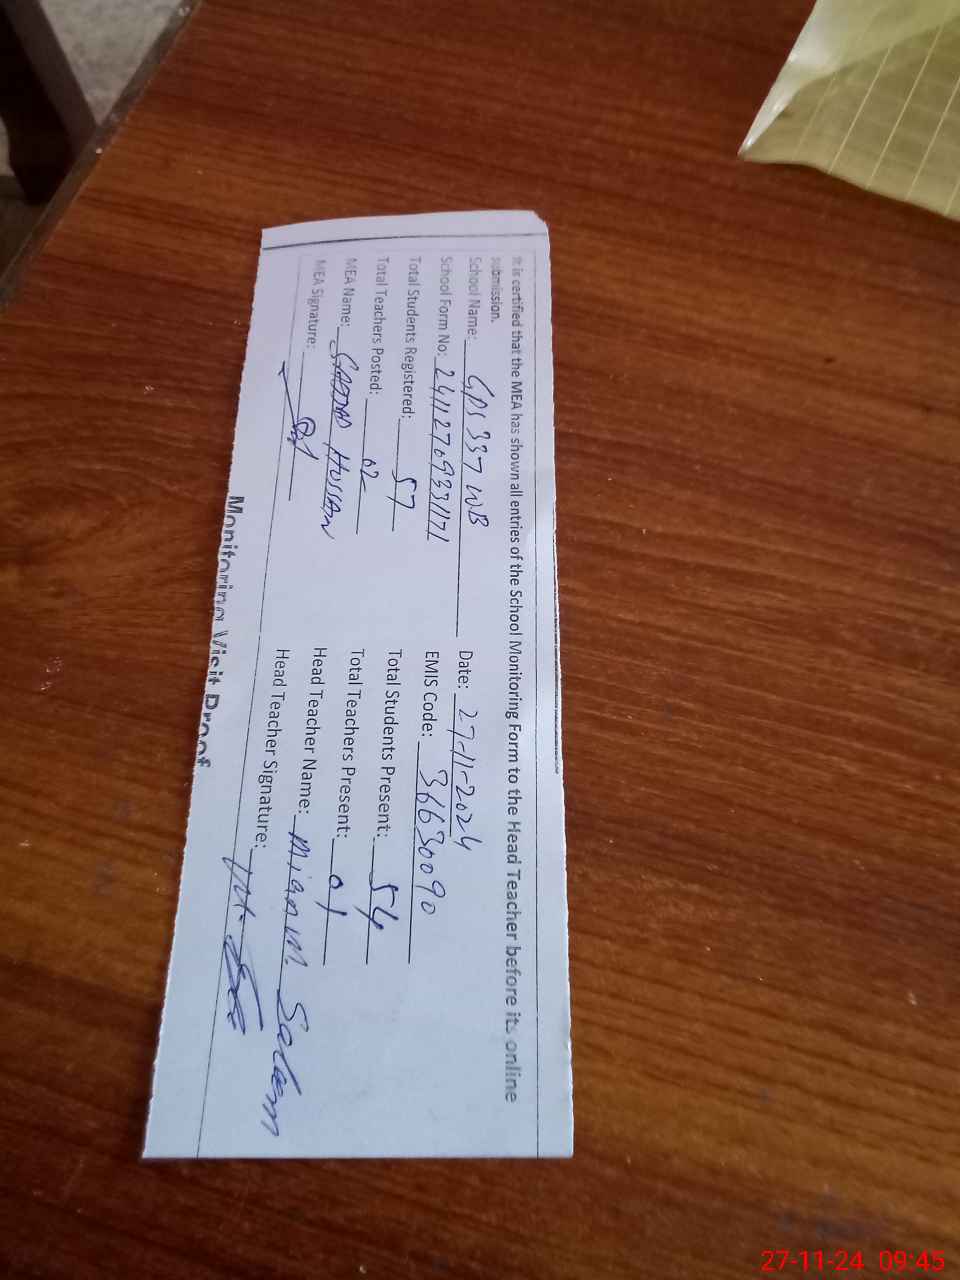 It is certified that the MEA has shown all entries of the School Monitoring Form to the Head Teacher before its online
submission.
School Name: GPS 337 WB Date: 27-11-2024
School Form No: 24112709331171 EMIS Code: 36630090
Total Students Registered: 57 Total Students Present: 54
Total Teachers Posted: 02 Total Teachers Present: 01
MEA Name: SAJJAD HUSSAIN Head Teacher Name: Mian M Saleem
MEA Signature: Head Teacher Signature:
Monitoring Visit Proof
27-11-24 09:45